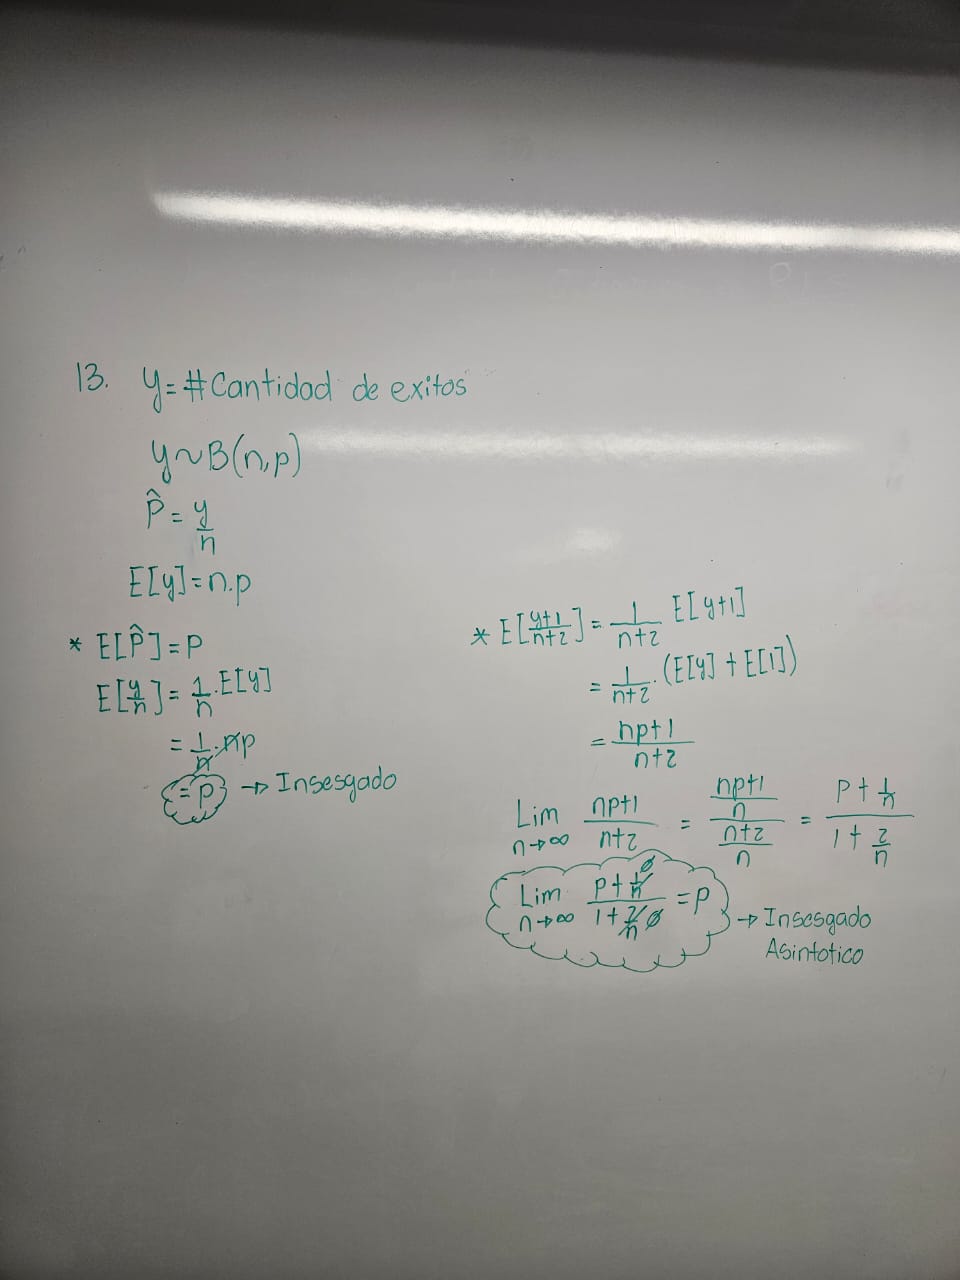 13. y = # Cantidad de exitos
y ~ B(n,p)
P̂ = y/n
E[y] = n.p
* E[P̂] = P
E[y/n] = 1/n . E[y]
= 1/n . np
= P → Insesgado
* E[y+1/n+2] = 1/n+2 E[y+1]
= 1/n+2 . (E[y] + E[1])
= np+1/n+2
Lim n→∞ np+1/n+2 = np+1/n / n+2/n = P + 1/n / 1 + 2/n
Lim n→∞ P + 1/n 0 / 1 + 2/n 0 = P → Insesgado
Asintotico